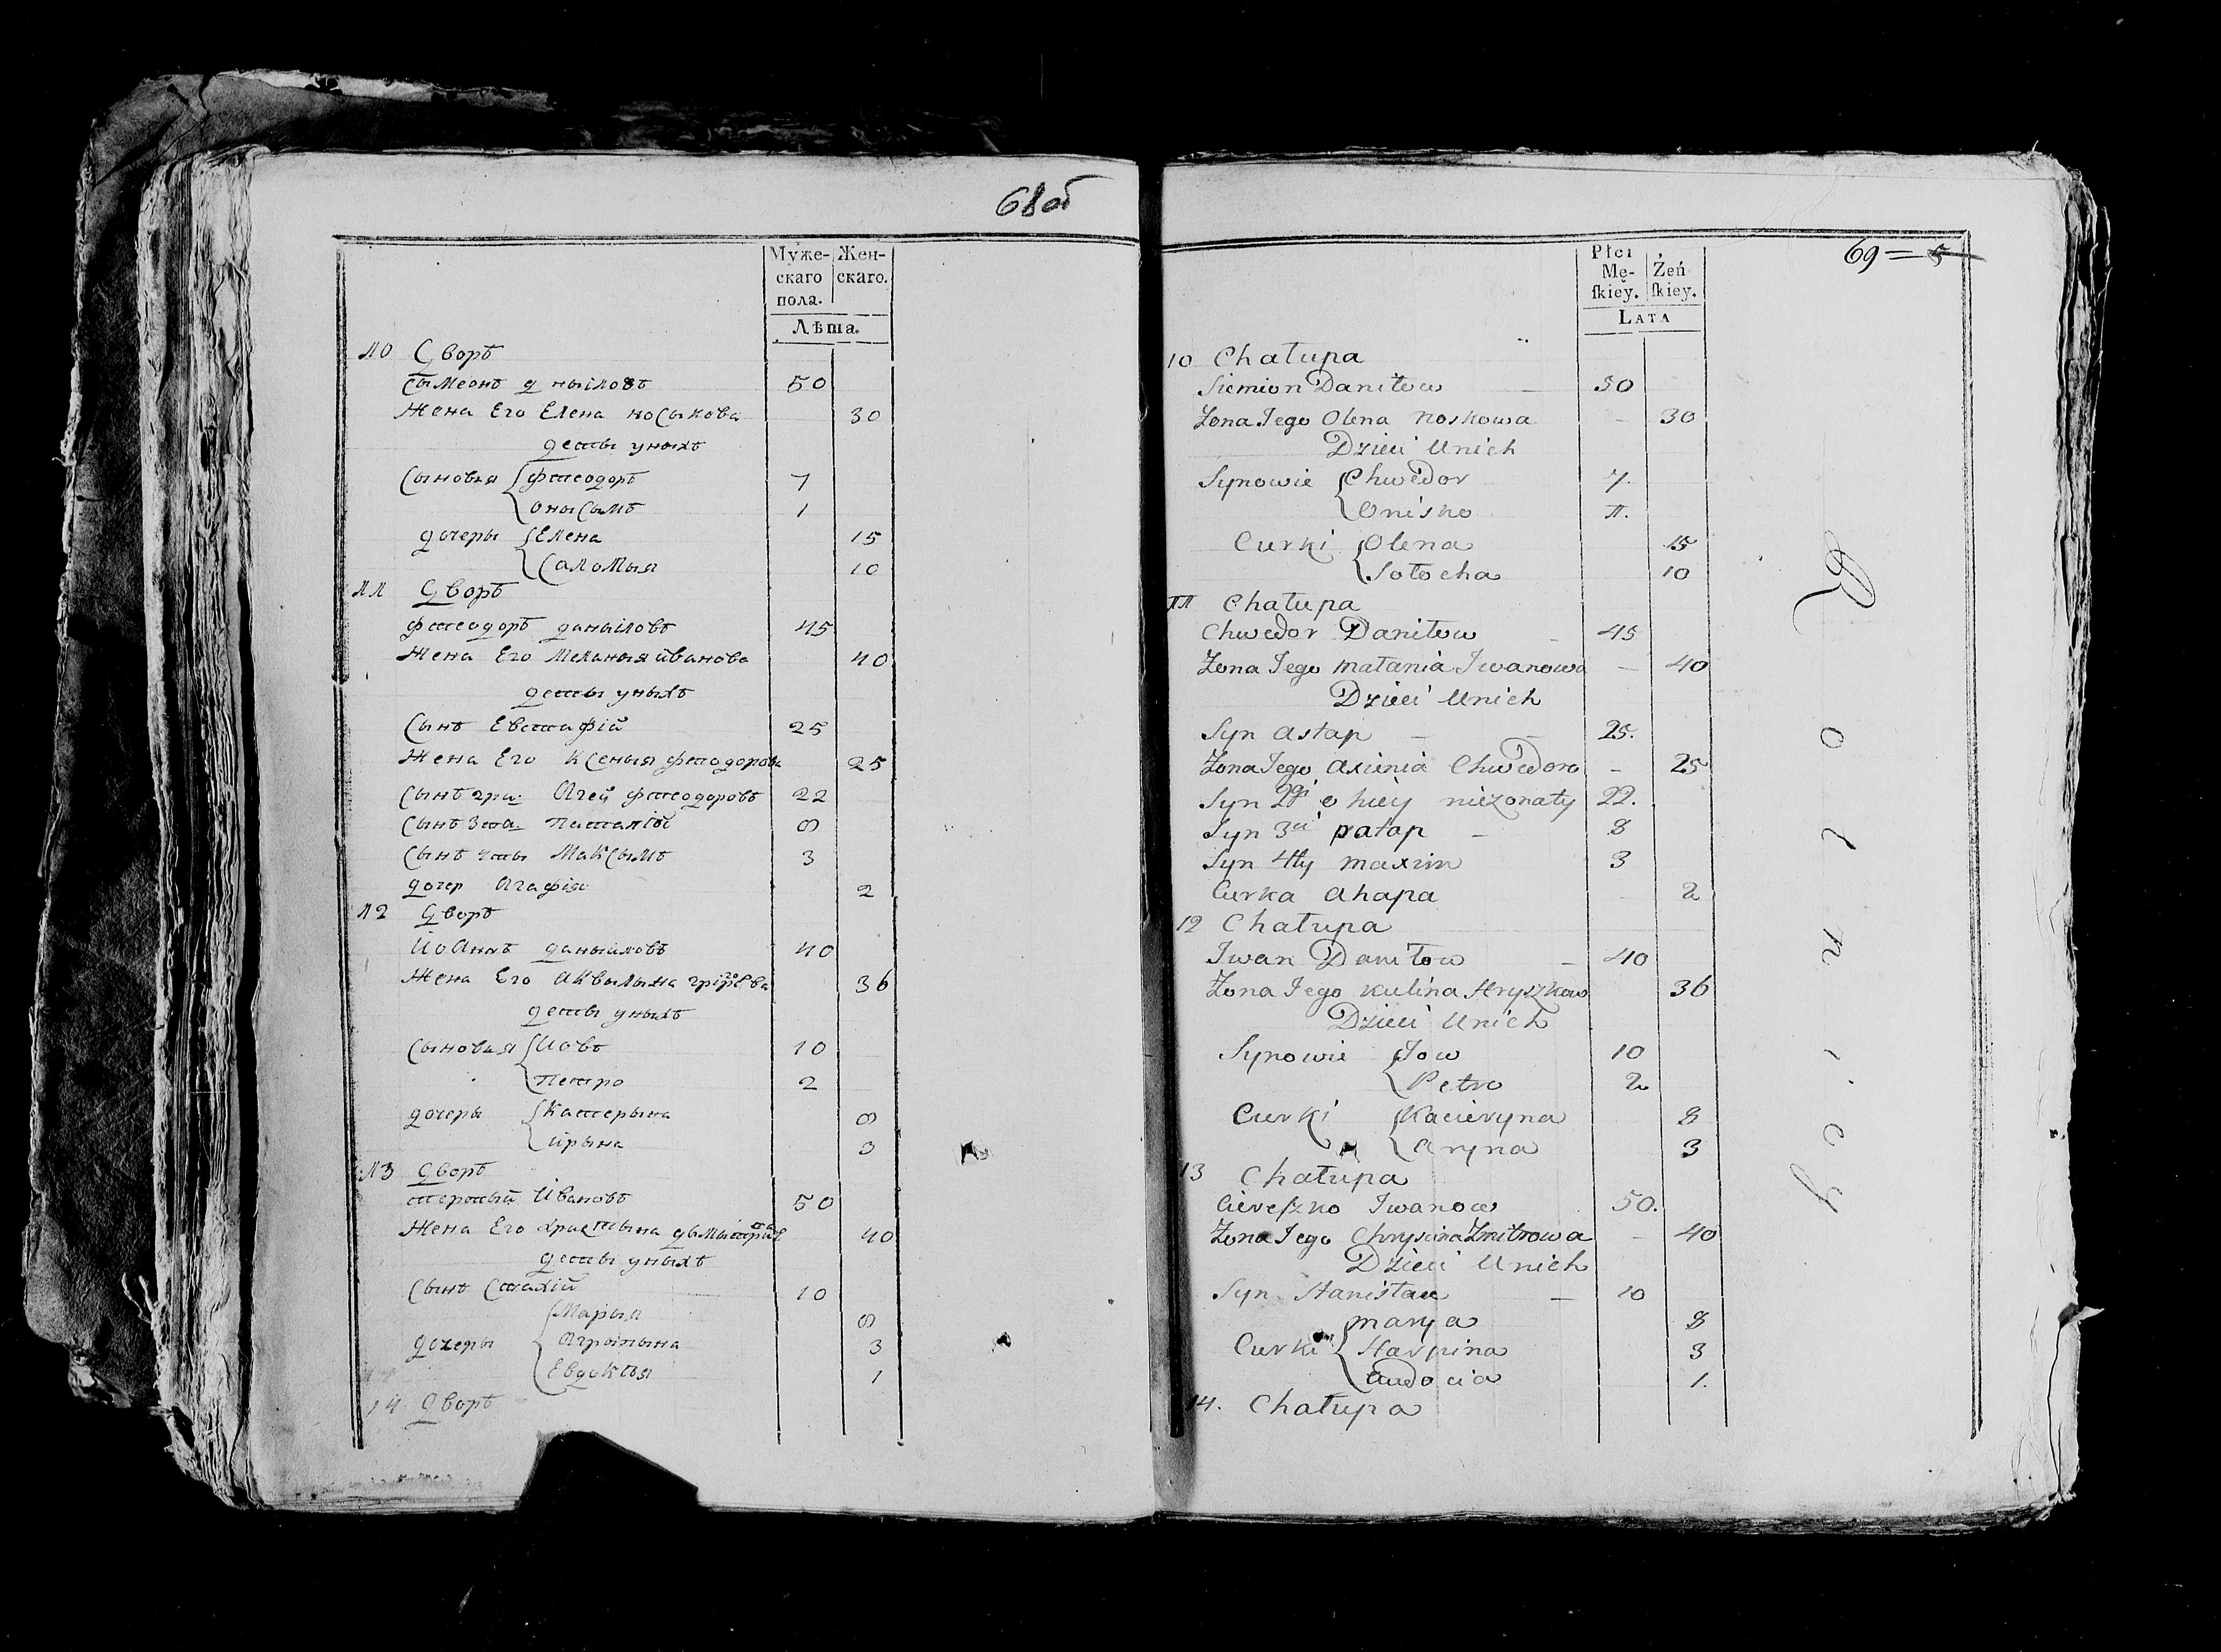 68об
Муже-
скаго
пола.
Жен-
скаго.
Лѣта.
10 Дворъ
Сымеонъ Д ныловъ 50
Жена Его Елена носыкова 30
деты уныхъ
Сыновья Фтеодоръ 7
Онысымъ 1
дочеры Елена 15
Саломыя 10
11 Дворъ
Фтеодоръ даныловъ 45
Жена Его Меланыя иванова 40
деты уныхъ
Сынъ Евстафій 25
Жена Его Ксеныя фтодорова 25
Сынъ Агей фтеодоровъ 22
Сынъ 3та 8
Сынъ Максымъ 3
дочер Агафія 2
12 Дворъ
Иоаннъ даныловъ 40
Жена Его Аквылына 36
деты уныхъ
Сыновья Иовъ 10
Петро 2
дочеры Катерына 8
ирына 3
13 Дворъ
Ивановъ 50
Жена Его 40
деты уныхъ
Сынъ Стахій 10
Марыя 8
дочеры Агрыпына 3
Евдоктыя 1
14 Дворъ
69 = 5
Płci
Mę-
ſkiey.
Żeń
ſkiey.
LATA
10 Chałupa
Siemion Daniłow 50
Zona Jego Olena Noskowa 30
Dzieci Unich
Synowie Chwedor 7.
Onisko 1.
Curki Olena 15
Sołocha 10
11 Chałupa
Chwedor Daniłow 45
Zona Jego Małania Iwanowa 40
Dzieci Unich
Syn Astap 25.
Zona Jego Axinia Chwedoro 25
Syn 2gi ohiey niezonaty 22.
Syn 3ci Patap 8
Syn 4ty Maxim 3
Curka Ahapa 2
12 Chałupa
Iwan Daniłow 40
Zona Jego Kulina Hryszkow 36
Dzieci Unich
Synowie Jow 10
Petro 2
Curki Kacieryna 8
Aryna 3
13 Chałupa
Ciereſzko Iwanow 50.
Zona Jego Chrysina Zmitrowa 40
Dzieci Unich
Syn Stanisław 10
Marya 8
Curki Harpina 3
Audocia 1.
14. Chałupa
Rolnicy